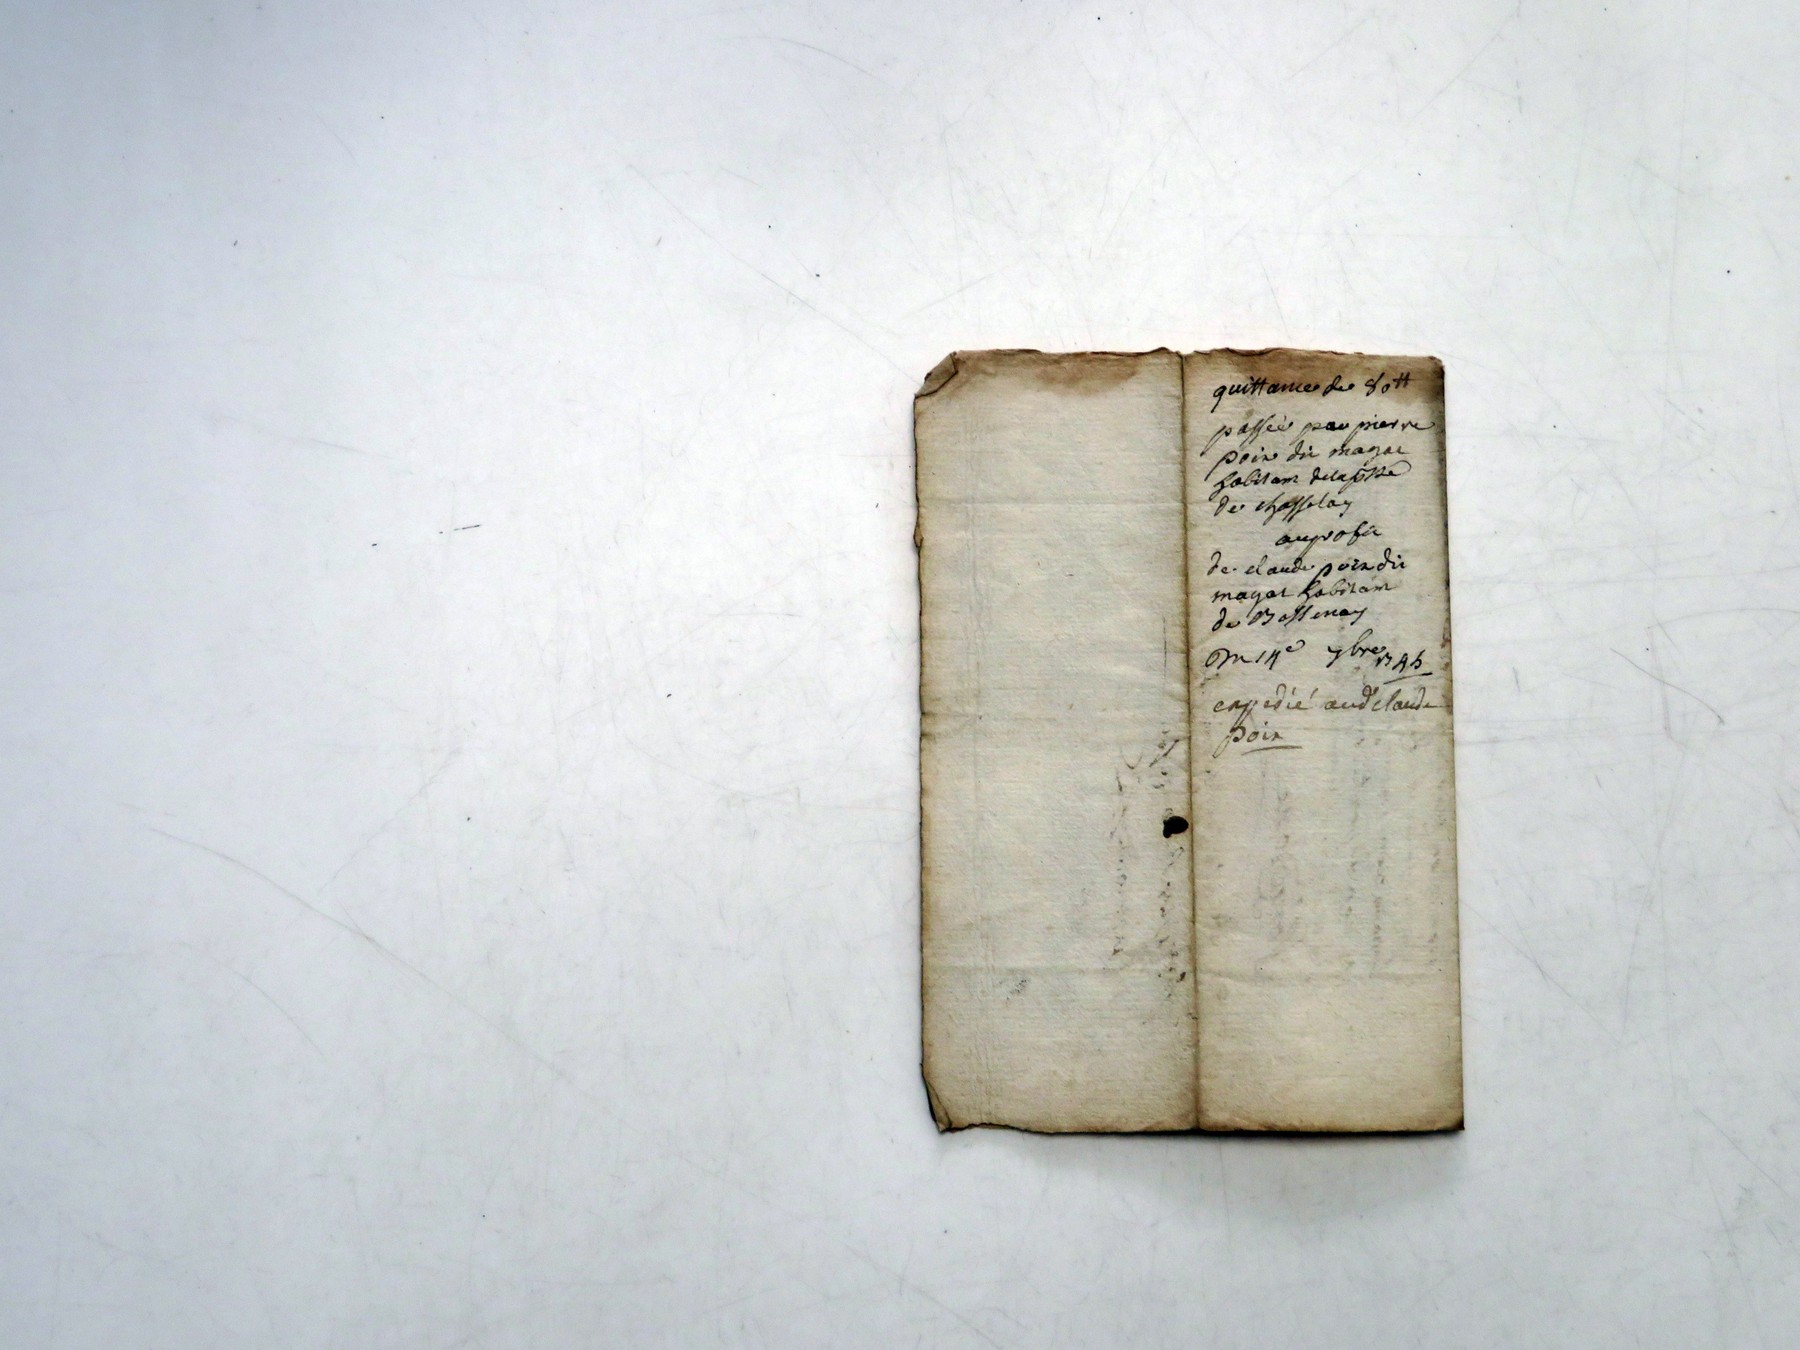 quittance de 80tt
passée par pierre
poix dit mayat
habitant dela psse
de chasselay
au profit
de claude poix dit
mayat habitant
de Bossenay
Du 14e 7bre 1745
expedié aud claude
poix